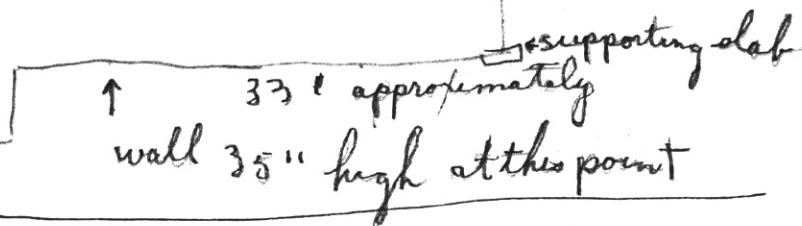 supporting slab
33' approximately
wall 35" high at this point